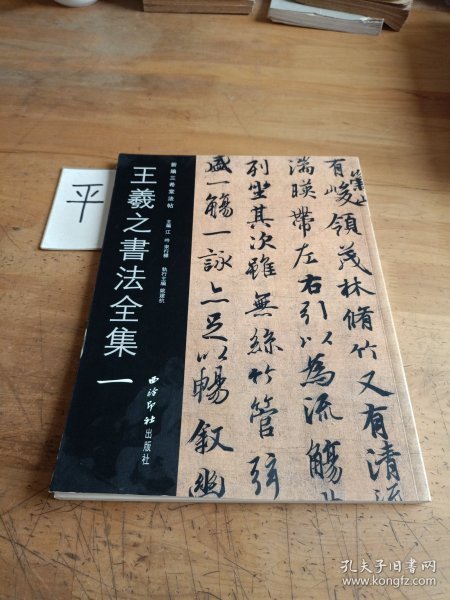 平
新編三希堂法帖
王羲之書法全集
一
西泠印社出版社
有峻領茂林脩竹又有清流
湍暎帶左右引以為流觴
列坐其次雖無絲竹管弦
盛一觴一詠亦足以暢敘幽
孔夫子旧书网
www.kongfz.com